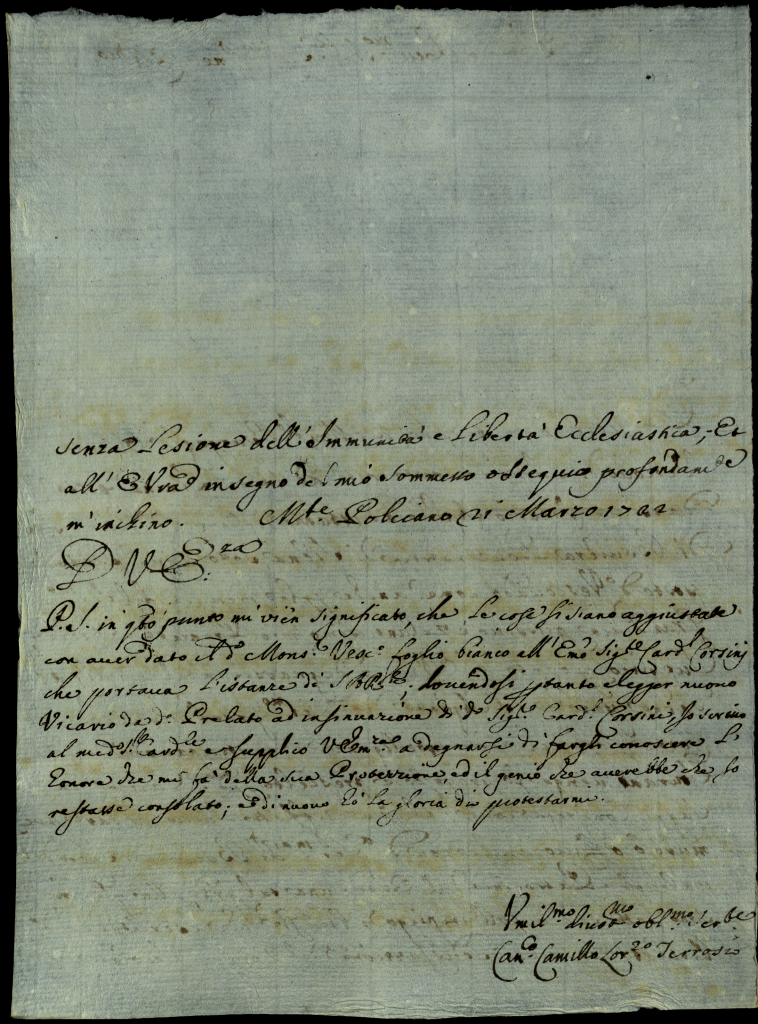 senza Lesione dell'Immunità e Libertà Ecclesiastica, Et
all' E Vra in segno del mio sommesso ossequio profondamte
m' inchino. Mte Pulciano 21 Marzo 1722
D V E:za
P.S. in qto punto mi vien significato, che le cose si siano aggiustate
con aver dato il do Monsr Vesco foglio bianco all' Emo Sigre Cardl Corsini
che portava l'istanze di dovendosi ptanto elegger nuovo
Vicario da do Prelato ad insinuazione di do Sigre Cardl Corsini, Io scrivo
al medo Sr Cardle e supplico V Emza a degnarsi di fargli conoscere L'
honore che mi fà della sua Protezzione, ed il genio che averebbe che Io
restasse consolato; e di nuovo hò la gloria di protestarmi.
Vmilmo divotmo oblmo ser.
Canco Camillo Lorzo Terrosi